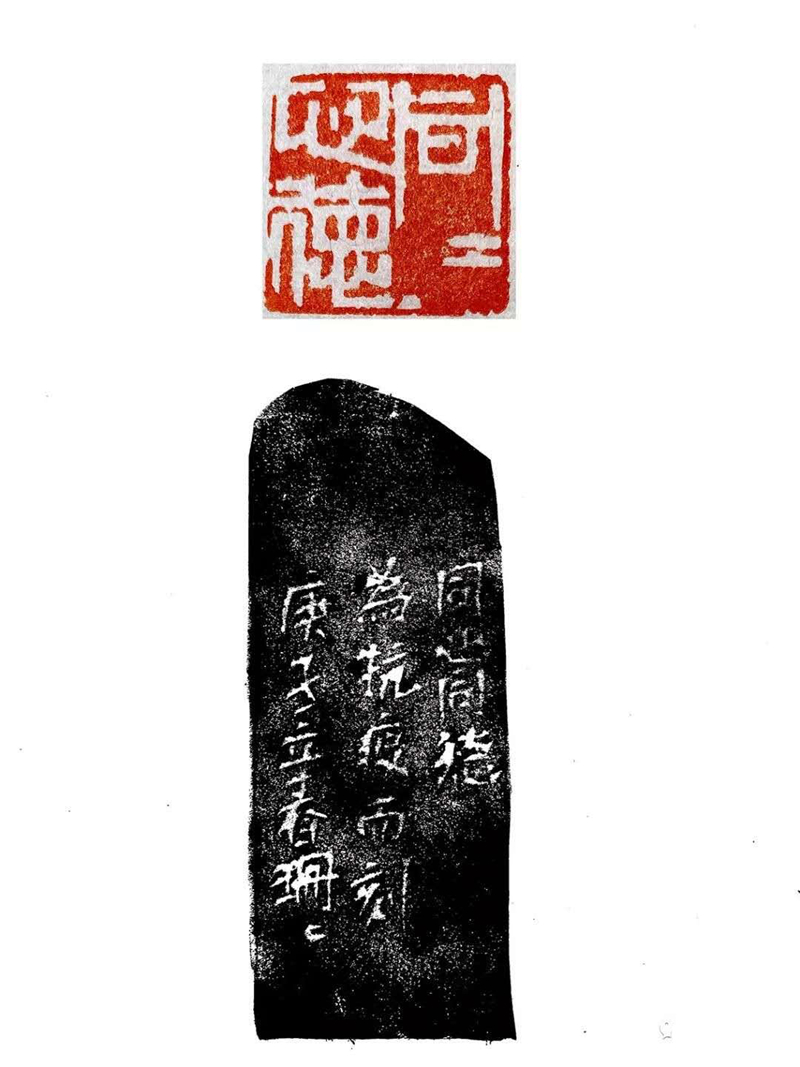 同〻
心德
同心同德
為抗疫而刻
庚子立春珊〻